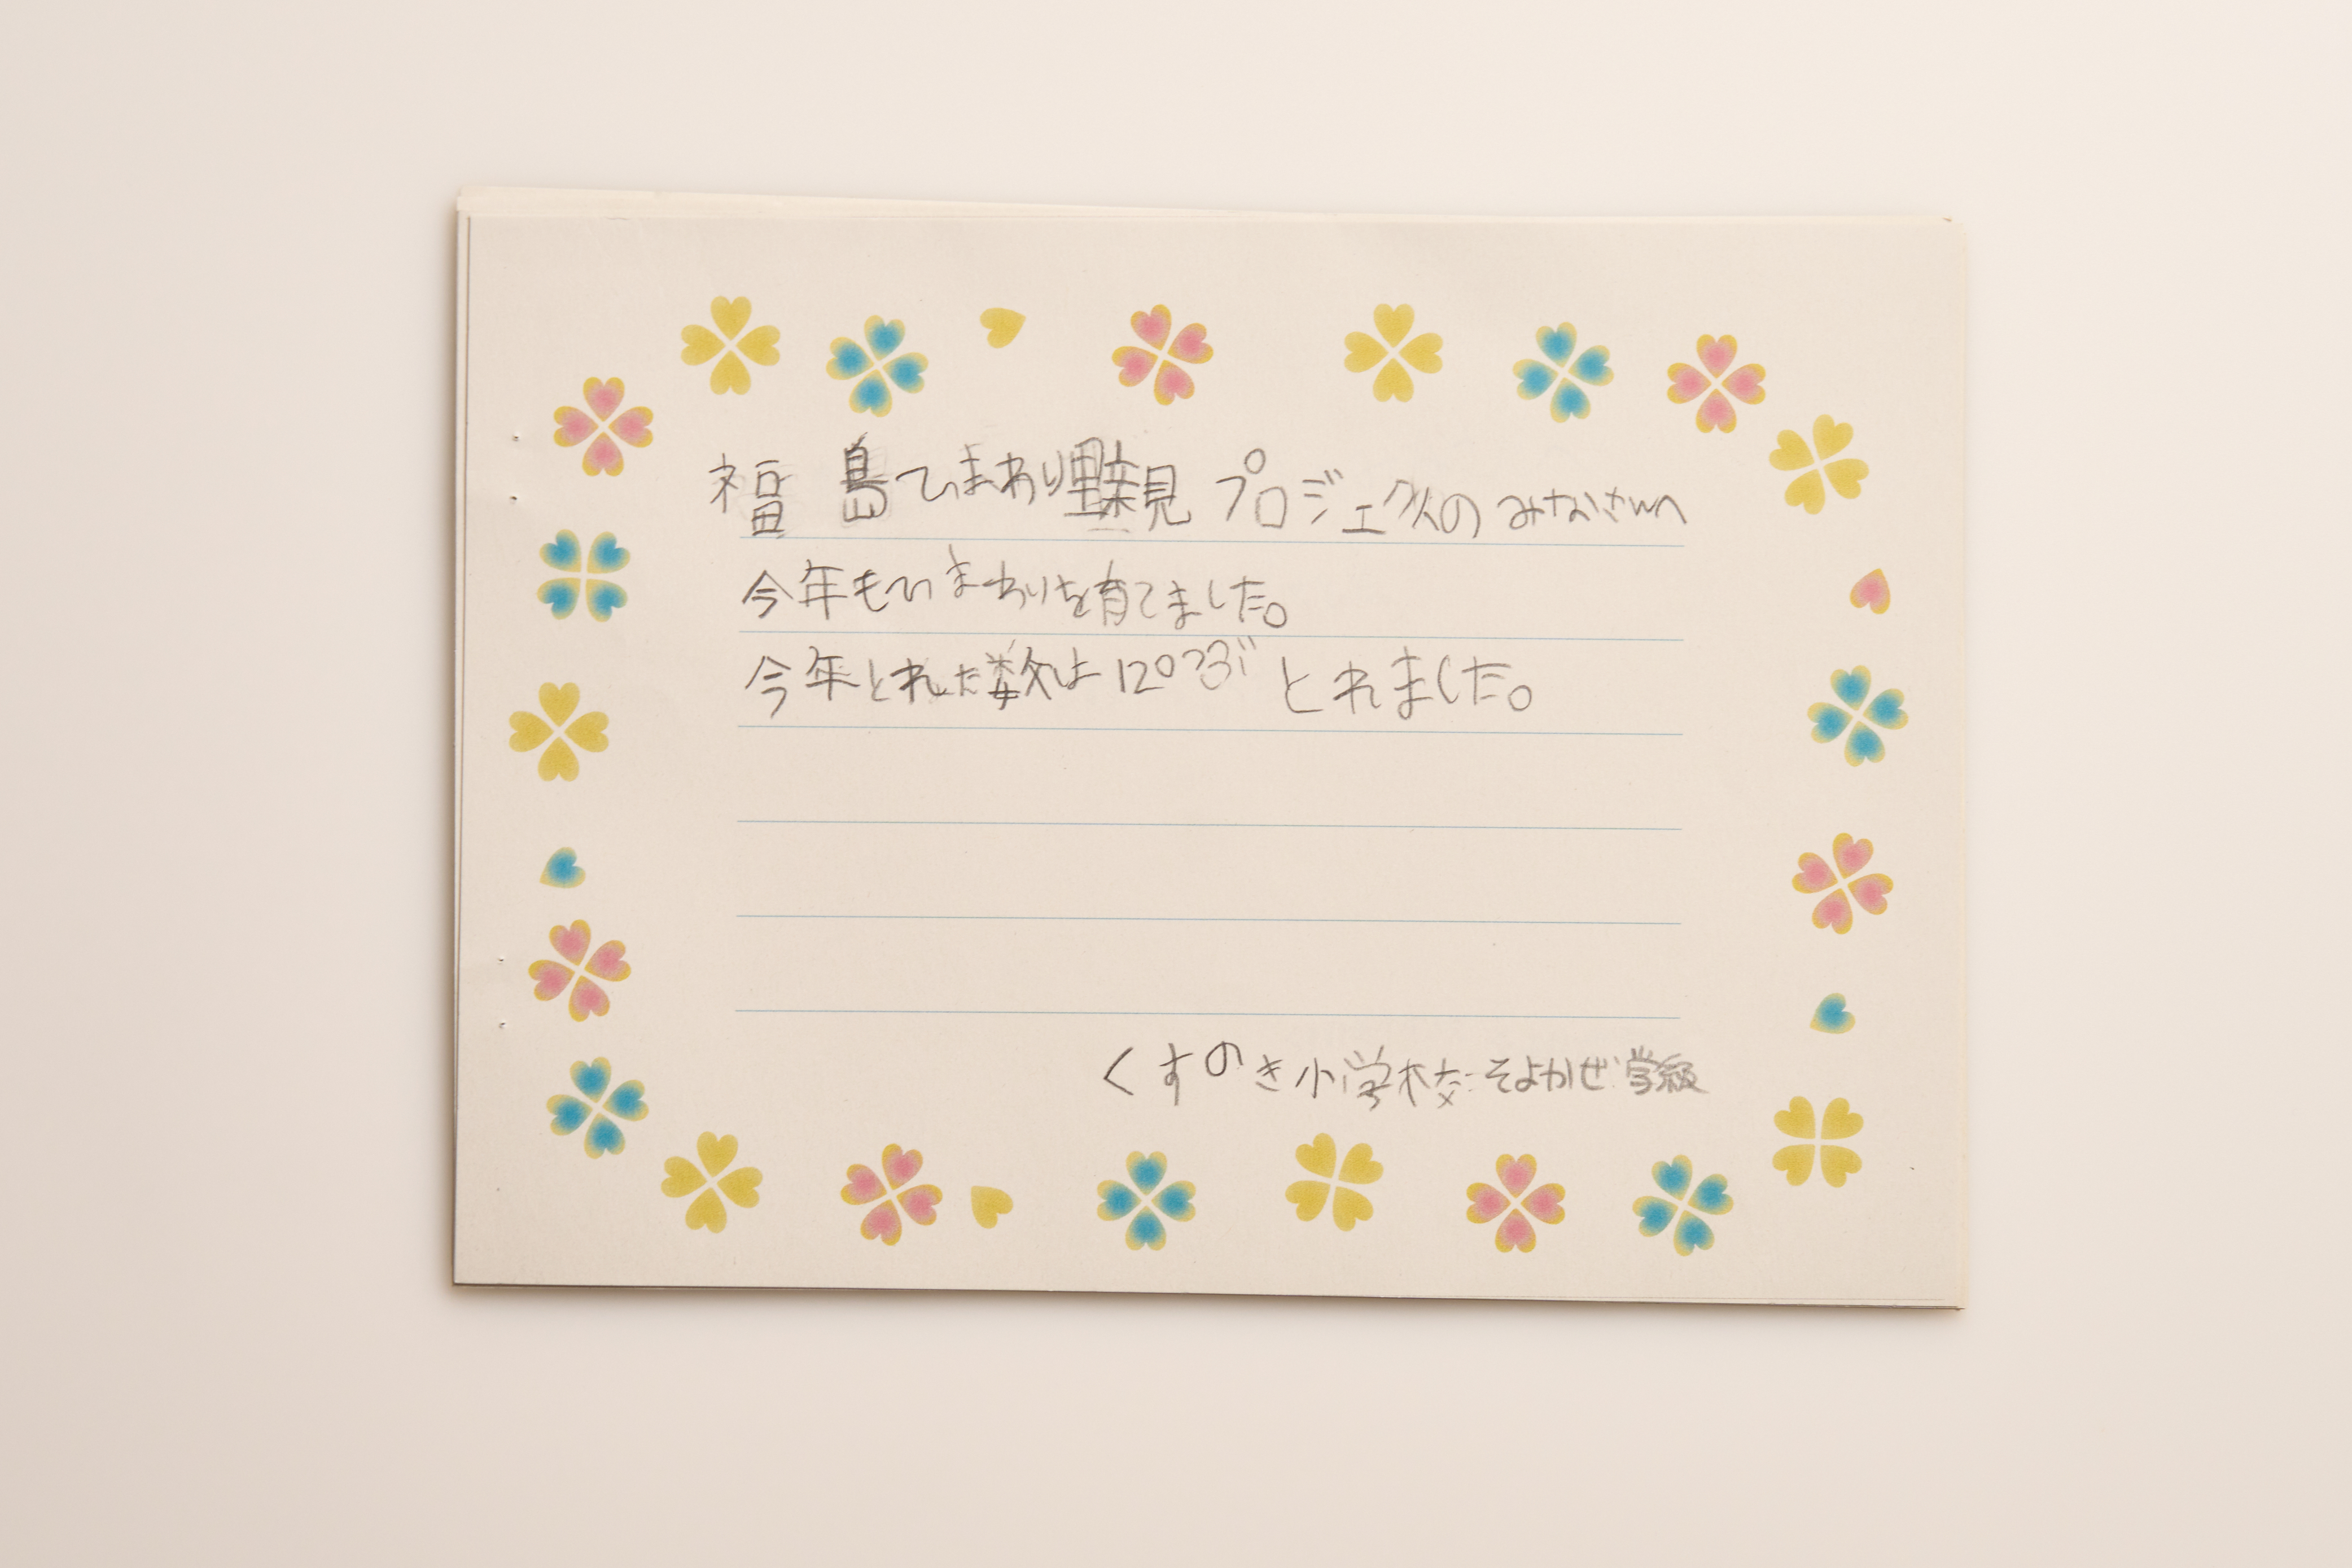 福島ひまわり里親プロジェクトのみなさんへ
今年もひまわりを育てました。
今年とれた数は120つぶとれました。
くすのき小学校そよかぜ学級